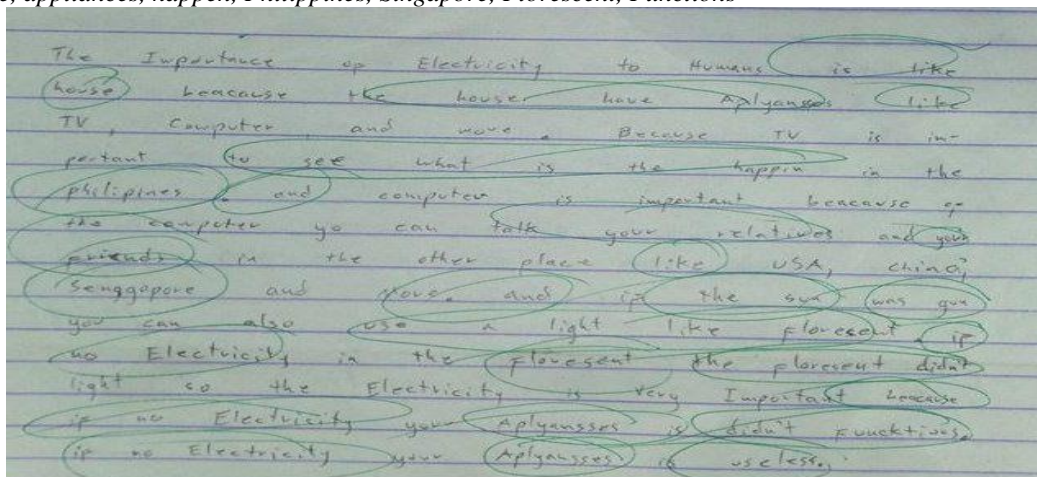 appliances, happen, Philippines, Singapore, Florescent, Functions
The Importance op Electricity to Humans is like
house beacause the house have Aplyansses like
TV, Computer, and more. Because TV is im-
portant to see what is the happin in the
philipines. and computer is important beacause op
the computer yo can talk your relatives and your
priends in the other place like USA, china,
Senggapore and more. and ip the sun was gun
you can also use a light like Floresent. ip
no Electricity in the Floresent the ploresent didn't
light so the Electricity is very Important beacause
ip no Electricity your Aplyansses is didn't Funcktions.
ip no Electricity your Aplyansses is useless.